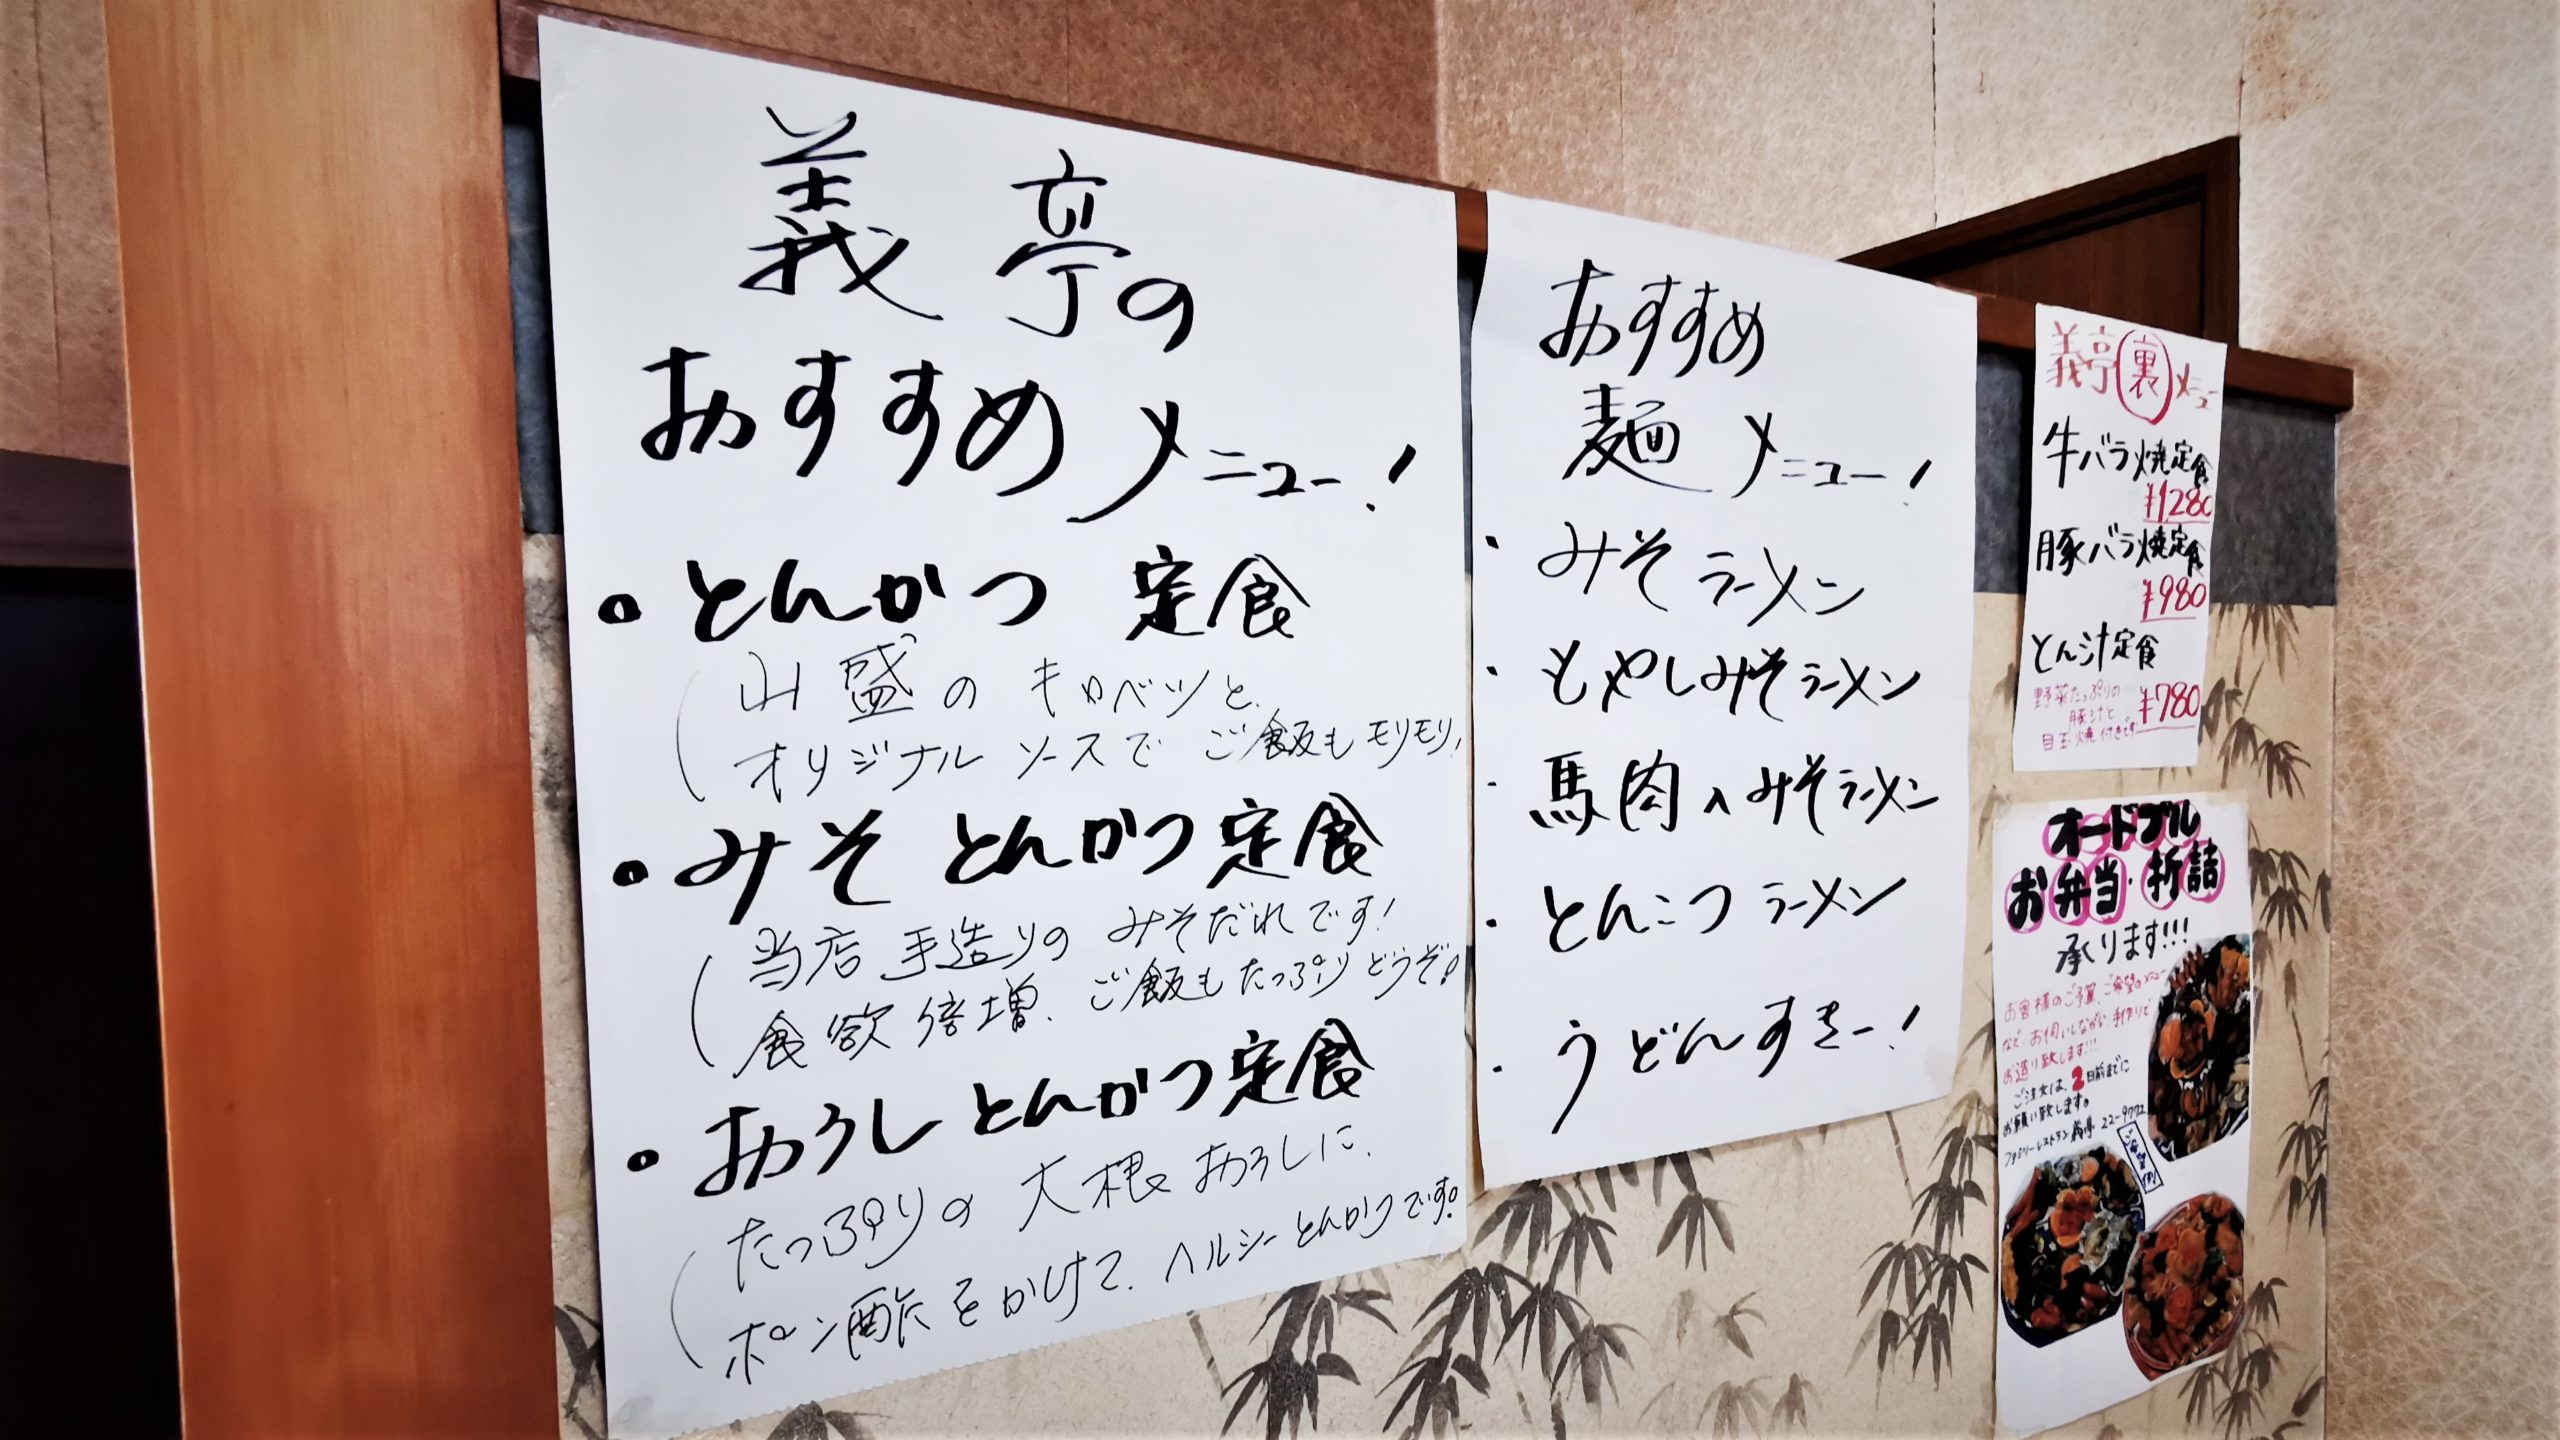 義亭の
おすすめメニュー!
・とんかつ 定食
山盛のキャベツと、
オリジナルソースでご飯もモリモリ!
・みそとんかつ定食
当店手造りのみそだれです!
食欲倍増、ご飯もたっぷりどうぞ!
・おろしとんかつ定食
たっぷりの大根おろしに、
ポン酢をかけて、ヘルシーとんかつです!
おすすめ
麺メニュー!
・みそラーメン
・もやしみそラーメン
・馬肉入みそラーメン
・とんこつラーメン
・うどんすきー!
義亭裏メニュー
牛バラ焼定食
¥1280
豚バラ焼定食
¥980
とん汁定食
¥780
野菜たっぷりの
豚汁と
目玉焼付きです
オードブル
お弁当・折詰
承ります!!!
お客様のご予算、ご希望のメニュー
など、お伺いしながら、手作りで
お造り致します!!!
ご注文は、2日前までに
お願い致します。
ファミリーレストラン義亭 22-9772